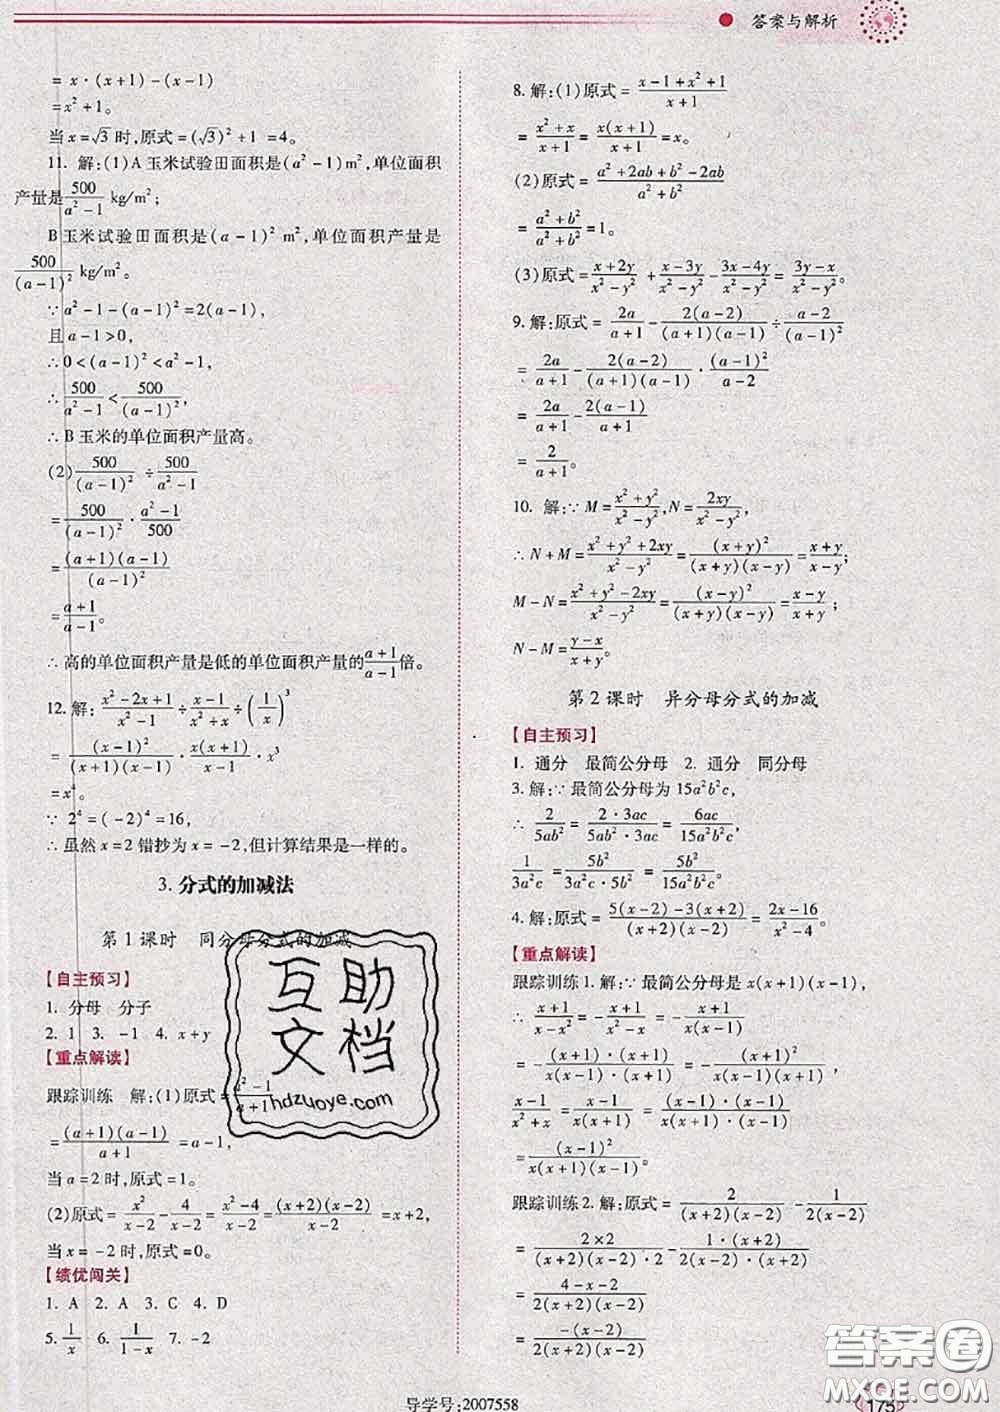 答案与解析
= x·(x+1)-(x-1)
=x²+1。
当 x=√3 时,原式=(√3)²+1=4。
11. 解:(1)A 玉米试验田面积是(a²-1)m²,单位面积
产量是 500/(a²-1) kg/m²;
B 玉米试验田面积是(a-1)² m²,单位面积产量是
500/(a-1)² kg/m²。
∵a²-1-(a-1)²=2(a-1),
且 a-1>0,
∴0<(a-1)²<a²-1,
∴ 500/(a²-1) < 500/(a-1)²,
∴ B 玉米的单位面积产量高。
(2) 500/(a-1)² ÷ 500/(a²-1)
= 500/(a-1)² · (a²-1)/500
= (a+1)(a-1)/(a-1)²
= (a+1)/(a-1)。
∴ 高的单位面积产量是低的单位面积产量的 (a+1)/(a-1) 倍。
12. 解: (x²-2x+1)/(x²-1) ÷ (x-1)/(x²+x) ÷ (1/x)³
= (x-1)²/((x+1)(x-1)) · x(x+1)/(x-1) · x³
=x⁴。
∵ 2⁴=(-2)⁴=16,
∴ 虽然 x=2 错抄为 x=-2,但计算结果是一样的。
3. 分式的加减法
第 1 课时 同分母分式的加减
【自主预习】
1. 分母 分子
2. 1 3. -1 4. x+y
【重点解读】
跟踪训练 解:(1)原式= (a²-1)/(a+1)
= (a+1)(a-1)/(a+1) =a-1,
当 a=2 时,原式=1。
(2)原式= x²/(x-2) - 4/(x-2) = (x²-4)/(x-2) = (x+2)(x-2)/(x-2) =x+2,
当 x=-2 时,原式=0。
【绩优闯关】
1. A 2. A 3. C 4. D
5. 1/x 6. 1/(1-x) 7. -2
8. 解:(1)原式= (x-1+x²+1)/(x+1)
= (x²+x)/(x+1) = x(x+1)/(x+1) =x。
(2)原式= (a²+2ab+b²-2ab)/(a²+b²)
= (a²+b²)/(a²+b²) =1。
(3)原式= (x+2y)/(x²-y²) + (x-3y)/(x²-y²) - (3x-4y)/(x²-y²) = (3y-x)/(x²-y²)。
9. 解:原式= 2a/(a+1) - 2(a-2)/((a+1)(a-1)) ÷ (a-2)/(a-1)²
= 2a/(a+1) - 2(a-2)/((a+1)(a-1)) · (a-1)²/(a-2)
= 2a/(a+1) - 2(a-1)/(a+1)
= 2/(a+1)。
10. 解:∵ M= (x²+y²)/(x²-y²), N= 2xy/(x²-y²),
∴ N+M= (x²+y²+2xy)/(x²-y²) = (x+y)²/((x+y)(x-y)) = (x+y)/(x-y);
M-N= (x²+y²-2xy)/(x²-y²) = (x-y)²/((x+y)(x-y)) = (x-y)/(x+y);
N-M= (y-x)/(x+y)。
第 2 课时 异分母分式的加减
【自主预习】
1. 通分 最简公分母 2. 通分 同分母
3. 解:∵ 最简公分母为 15a²b²c,
∴ 2/(5ab²) = 2·3ac/(5ab²·3ac) = 6ac/(15a²b²c),
1/(3a²c) = 5b²/(3a²c·5b²) = 5b²/(15a²b²c)。
4. 解:原式= (5(x-2)-3(x+2))/((x+2)(x-2)) = (2x-16)/(x²-4)。
【重点解读】
跟踪训练 1. 解:∵ 最简公分母是 x(x+1)(x-1),
∴ (x+1)/(x-x²) = -(x+1)/(x²-x) = -(x+1)/(x(x-1))
= -(x+1)·(x+1)/(x(x-1)·(x+1)) = -(x+1)²/(x(x+1)(x-1)),
(x-1)/(x²+x) = (x-1)/(x(x+1)) = (x-1)·(x-1)/(x(x+1)·(x-1))
= (x-1)²/(x(x+1)(x-1))。
跟踪训练 2. 解:原式= 2/((x+2)(x-2)) - 1/(2(x-2))
= 2×2/((x+2)(x-2)·2) - 1·(x+2)/(2(x-2)(x+2))
= (4-x-2)/(2(x+2)(x-2))
= -(x-2)/(2(x+2)(x-2))
互助
文档
hdzuoye.com
答案圈
MXQE.COM
导学号:2007558
175